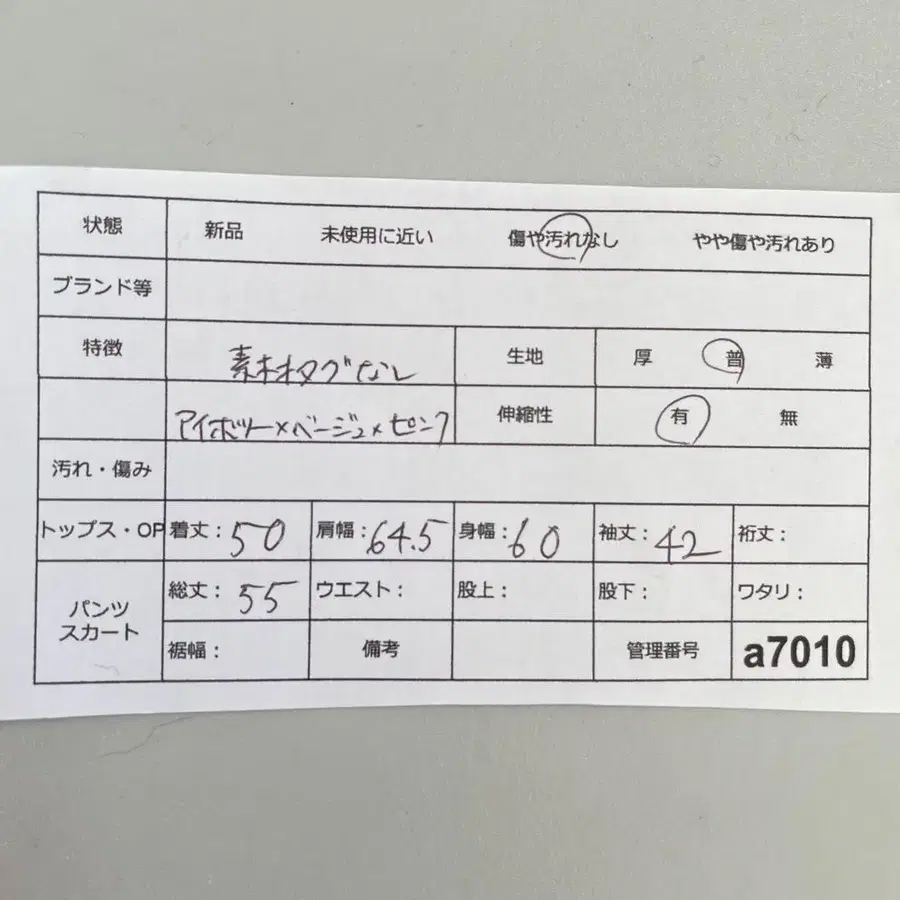 状態 新品 未使用に近い 傷や汚れなし やや傷や汚れあり
ブランド等
特徴 素材タグなし 生地 厚 普 薄
アイボリー×ベージュ×ピンク 伸縮性 有 無
汚れ・傷み
トップス・OP 着丈：50 肩幅：64.5 身幅：60 袖丈：42 裄丈：
パンツ スカート 総丈：55 ウエスト： 股上： 股下： ワタリ：
裾幅： 備考 管理番号 a7010